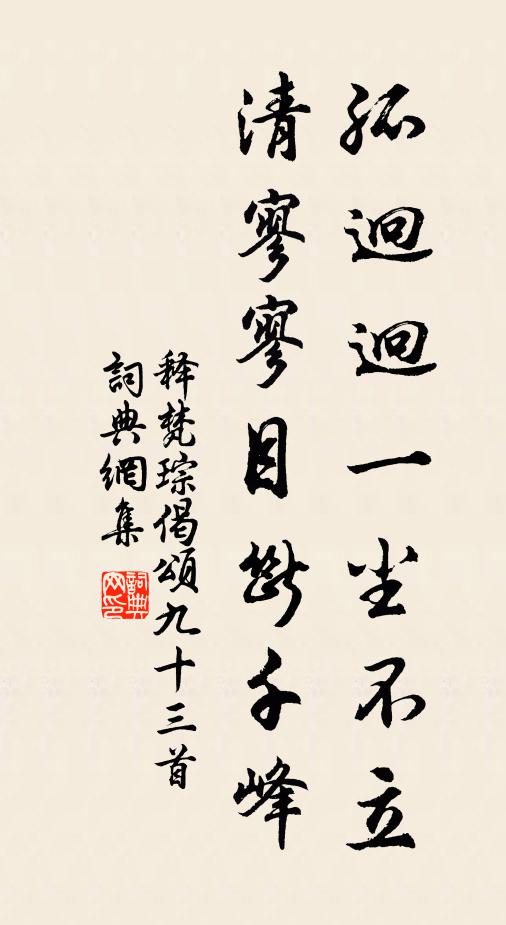 孤迥迥一尘不立
清寥寥目斷千峰
释梵琮偈頌九十三首
詞典網集
詞典网印